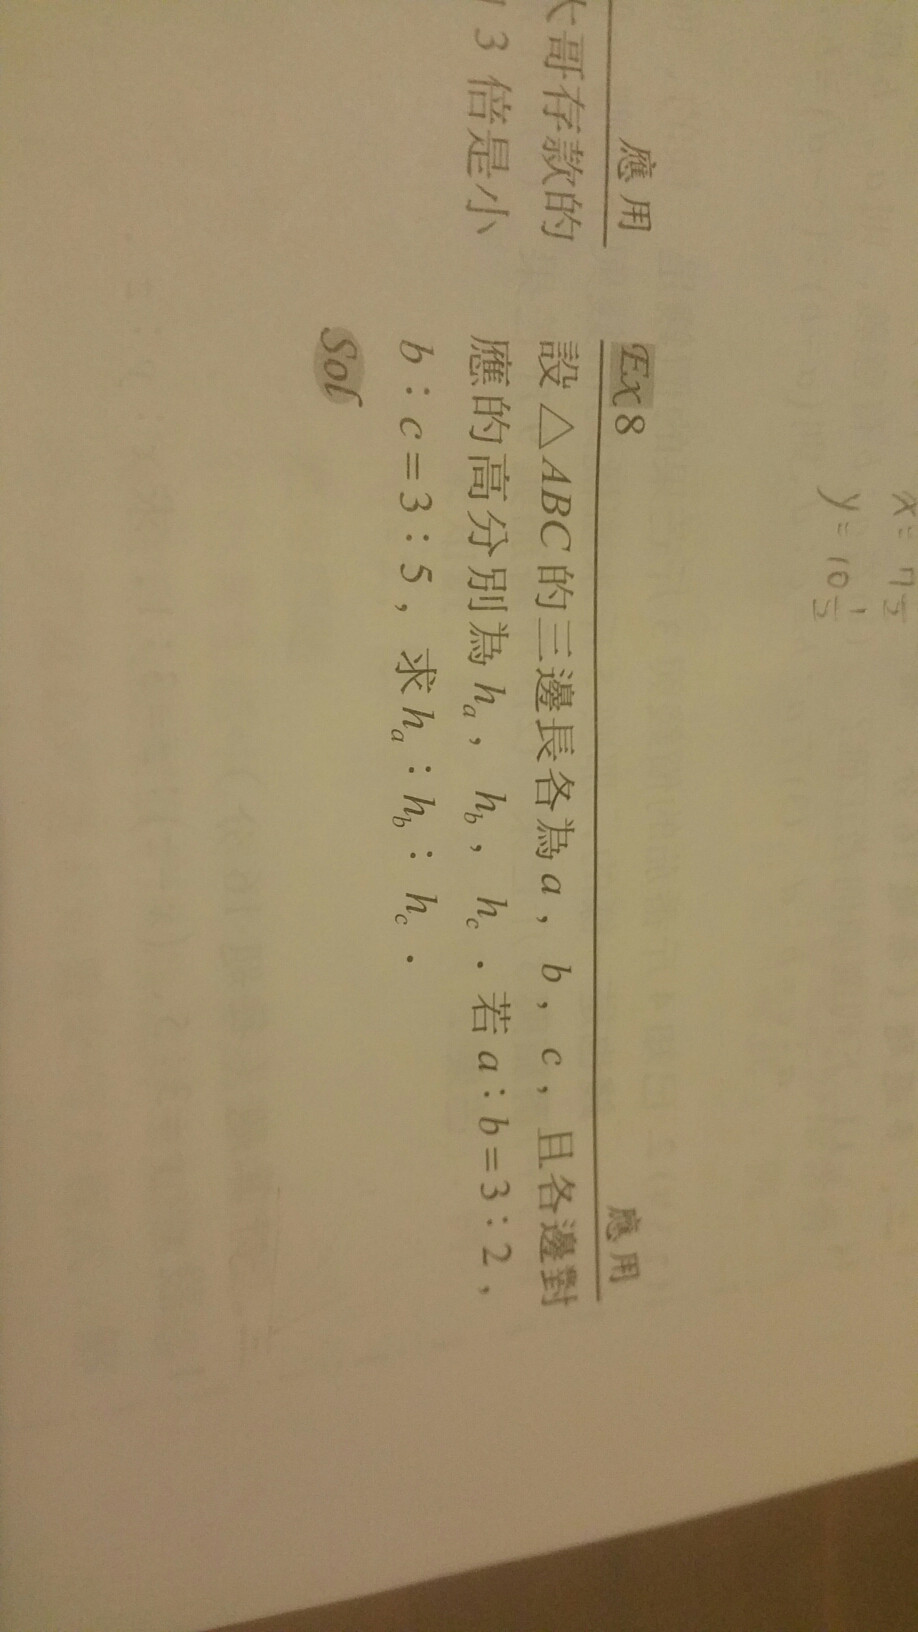 應用
大哥存款的
3倍是小
Ex 8
應用
設△ABC的三邊長各為a,b,c,且各邊對
應的高分別為hₐ,h_b,h_c.若a:b=3:2,
b:c=3:5,求hₐ:h_b:h_c.
Sol
y=10